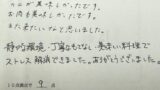 カニが美味しかったです。
お肉も美味しかったです。
また来たいなぁと思いました。
静かな環境、丁寧なもてなし、美味しい料理で
ストレス解消できました。ありがとうございました。
10点満点で 9 点